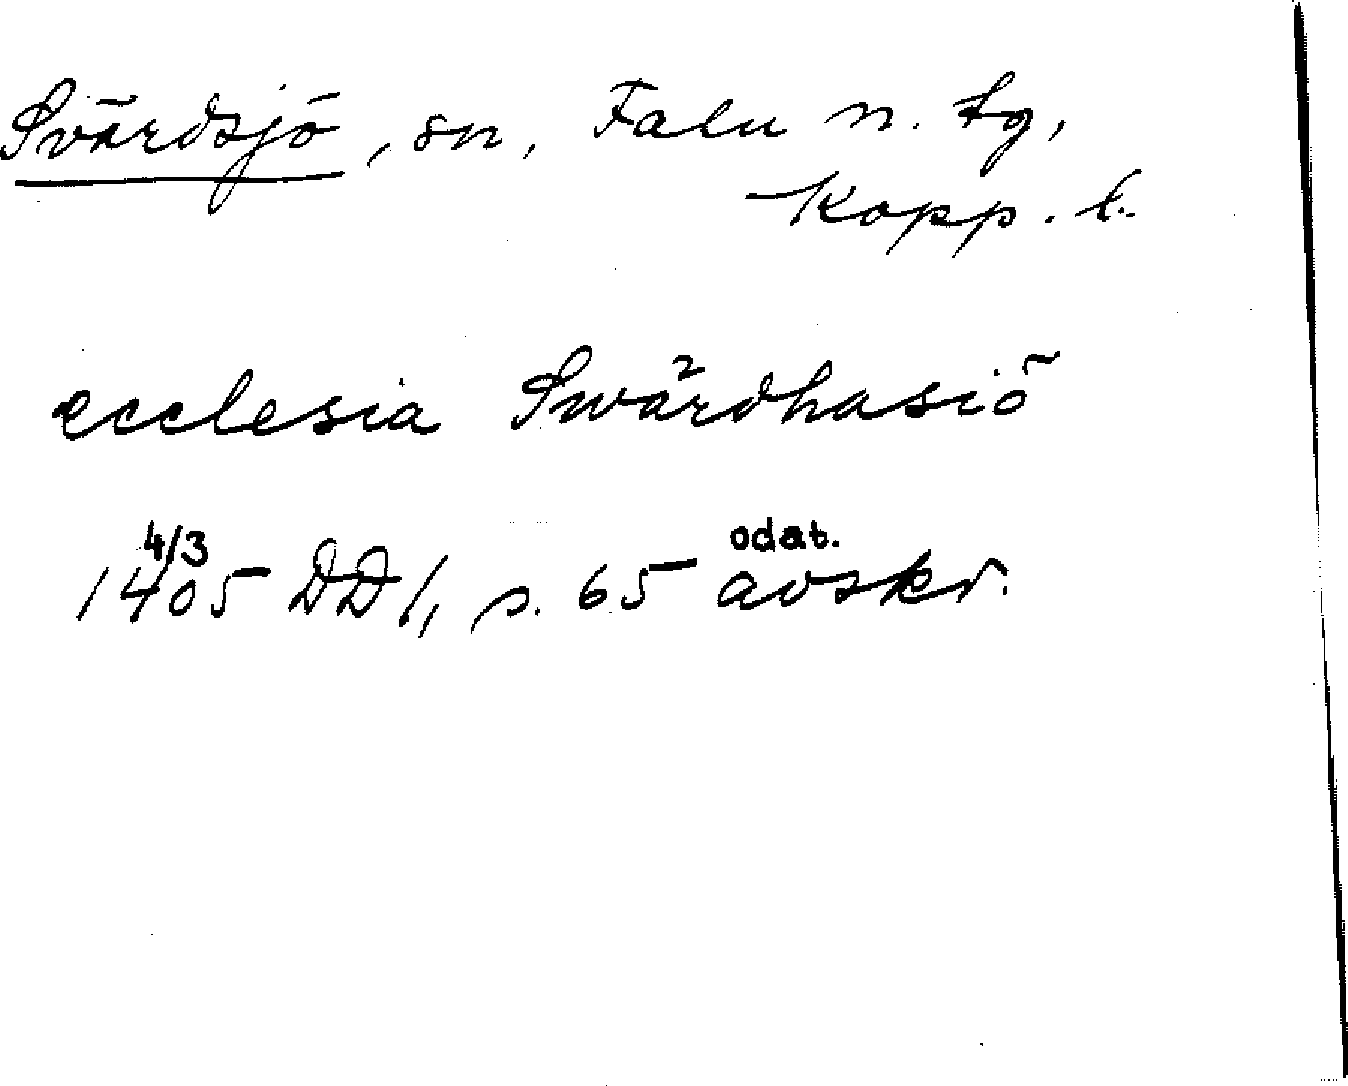 Svärdsjö, sn, Falu n. tg,
Kopp. l.
ecclesia Swärdhasiö
4/3 odat.
1405 DD 1, s. 65 avskr.